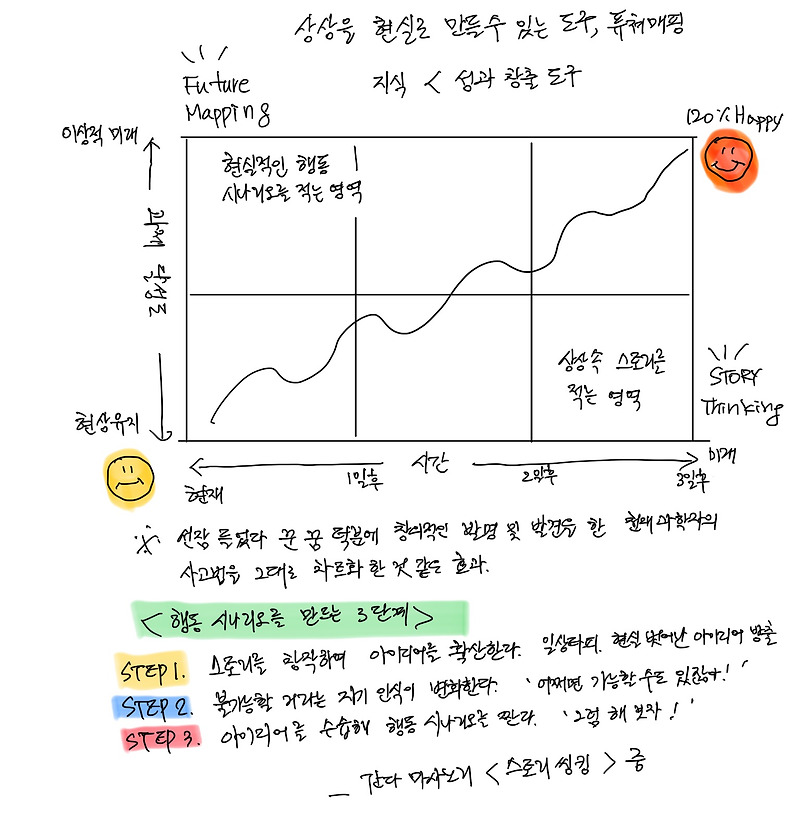 상상을 현실로 만들 수 있는 도구, 퓨처매핑
Future
Mapping
지식 < 성과 창출 도구
이상적 미래
120% Happy
현실적인 행동
시나리오를 적는 영역
과제 달성도
상상속 스토리를
적는 영역
STORY
Thinking
현상유지
현재
1일후
시간
2일후
3일후
미래
※ 선잠 들었다 꾼 꿈 덕분에 창의적인 발명 및 발견을 한 천재과학자의
사고법을 그대로 차트화 한 것 같은 효과.
<행동 시나리오를 만드는 3단계>
STEP 1. 스토리를 창작하며 아이디어를 확산한다. 일상타파. 현실 벗어난 아이디어 방출
STEP 2. 불가능할 거라는 자기 인식이 변화한다. '어쩌면 가능할 수도 있잖아!'
STEP 3. 아이디어를 수습해 행동 시나리오를 짠다. '그럼 해보자!'
_ 간다 마사노리 <스토리 씽킹> 중